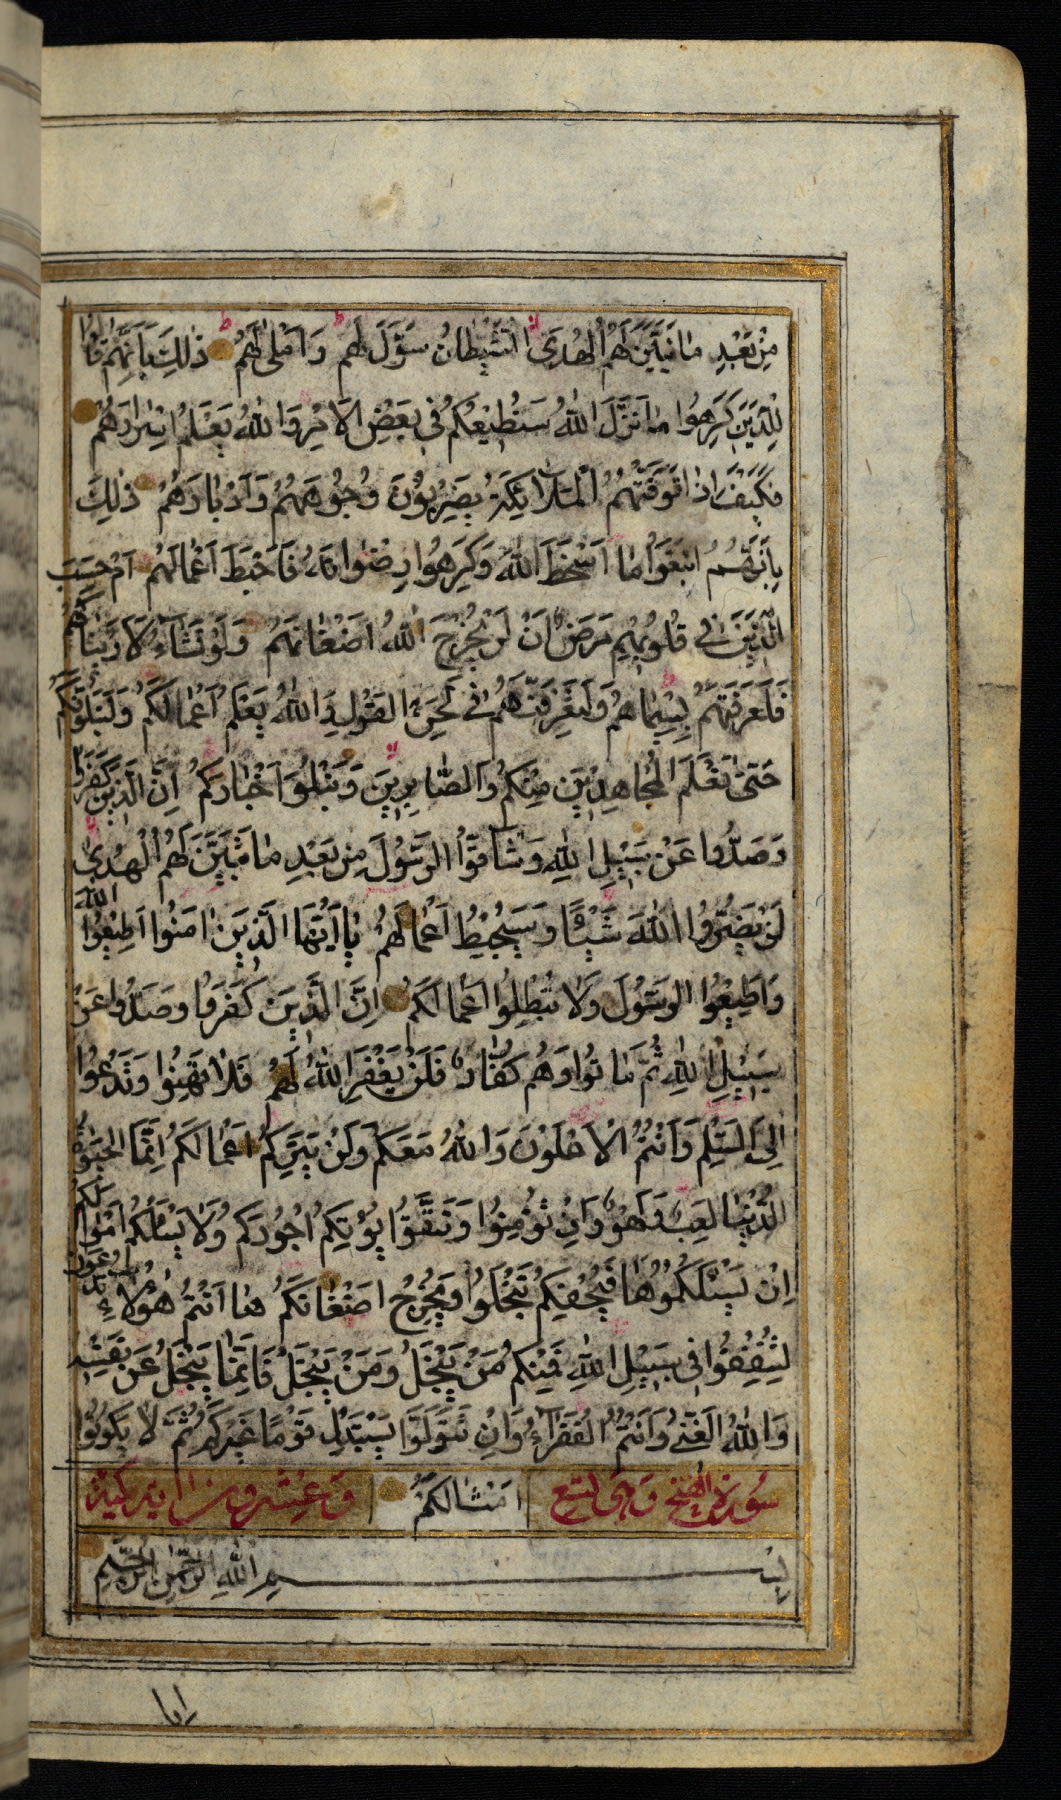 مِنْ بَعْدِ مَا تَبَيَّنَ لَهُمُ الْهُدَى الشَّيْطَانُ سَوَّلَ لَهُمْ وَاَمْلٰى لَهُمْ ذٰلِكَ بِاَنَّهُمْ قَالُوا
لِلَّذِينَ كَرِهُوا مَا نَزَّلَ اللّٰهُ سَنُطِيعُكُمْ فِى بَعْضِ الْاَمْرِ وَاللّٰهُ يَعْلَمُ اِسْرَارَهُمْ
فَكَيْفَ اِذَا تَوَفَّتْهُمُ الْمَلَائِكَةُ يَضْرِبُونَ وُجُوهَهُمْ وَاَدْبَارَهُمْ ذٰلِكَ
بِاَنَّهُمُ اتَّبَعُوا مَا اَسْخَطَ اللّٰهَ وَكَرِهُوا رِضْوَانَهُ فَاَحْبَطَ اَعْمَالَهُمْ اَمْ حَسِبَ
الَّذِينَ فِى قُلُوبِهِمْ مَرَضٌ اَنْ لَنْ يُخْرِجَ اللّٰهُ اَضْغَانَهُمْ وَلَوْ نَشَاءُ لَاَرَيْنَاكَهُمْ
فَلَعَرَفْتَهُمْ بِسِيمَاهُمْ وَلَتَعْرِفَنَّهُمْ فِى لَحْنِ الْقَوْلِ وَاللّٰهُ يَعْلَمُ اَعْمَالَكُمْ وَلَنَبْلُوَنَّكُمْ
حَتّٰى نَعْلَمَ الْمُجَاهِدِينَ مِنْكُمْ وَالصَّابِرِينَ وَنَبْلُوَا اَخْبَارَكُمْ اِنَّ الَّذِينَ كَفَرُوا
وَصَدُّوا عَنْ سَبِيلِ اللّٰهِ وَشَاقُّوا الرَّسُولَ مِنْ بَعْدِ مَا تَبَيَّنَ لَهُمُ الْهُدٰى
لَنْ يَضُرُّوا اللّٰهَ شَيْئًا وَسَيُحْبِطُ اَعْمَالَهُمْ يَا اَيُّهَا الَّذِينَ اٰمَنُوا اَطِيعُوا اللّٰهَ
وَاَطِيعُوا الرَّسُولَ وَلَا تُبْطِلُوا اَعْمَالَكُمْ اِنَّ الَّذِينَ كَفَرُوا وَصَدُّوا عَنْ
سَبِيلِ اللّٰهِ ثُمَّ مَاتُوا وَهُمْ كُفَّارٌ فَلَنْ يَغْفِرَ اللّٰهُ لَهُمْ فَلَا تَهِنُوا وَتَدْعُوا
اِلَى السَّلْمِ وَاَنْتُمُ الْاَعْلَوْنَ وَاللّٰهُ مَعَكُمْ وَلَنْ يَتِرَكُمْ اَعْمَالَكُمْ اِنَّمَا الْحَيٰوةُ
الدُّنْيَا لَعِبٌ وَلَهْوٌ وَاِنْ تُؤْمِنُوا وَتَتَّقُوا يُؤْتِكُمْ اُجُورَكُمْ وَلَا يَسْئَلْكُمْ اَمْوَالَكُمْ
اِنْ يَسْئَلْكُمُوهَا فَيُحْفِكُمْ تَبْخَلُوا وَيُخْرِجْ اَضْغَانَكُمْ هَا اَنْتُمْ هٰؤُلَاءِ تُدْعَوْنَ
لِتُنْفِقُوا فِى سَبِيلِ اللّٰهِ فَمِنْكُمْ مَنْ يَبْخَلُ وَمَنْ يَبْخَلْ فَاِنَّمَا يَبْخَلُ عَنْ نَفْسِهِ
وَاللّٰهُ الْغَنِىُّ وَاَنْتُمُ الْفُقَرَاءُ وَاِنْ تَتَوَلَّوْا يَسْتَبْدِلْ قَوْمًا غَيْرَكُمْ ثُمَّ لَا يَكُونُوا
سُورَةُ الْفَتْحِ وَهِىَ تِسْع اَمْثَالَكُمْ وَعِشْرُونَ اٰيَة مَكِّيَّة
بِسْمِ اللّٰهِ الرَّحْمٰنِ الرَّحِيمِ
اِنَّا